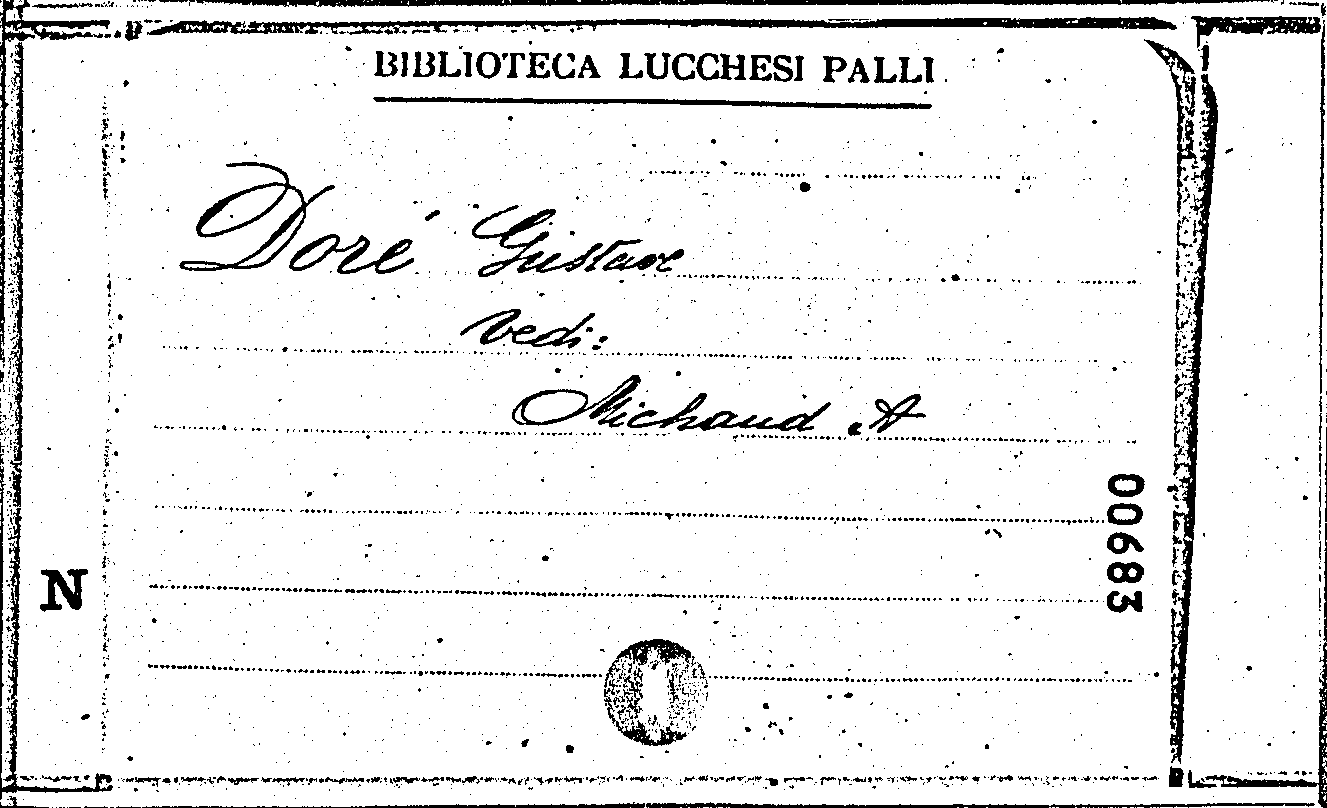 BIBLIOTECA LUCCHESI PALLI
Doré Gustave
Vedi:
Michaud A
00683
N